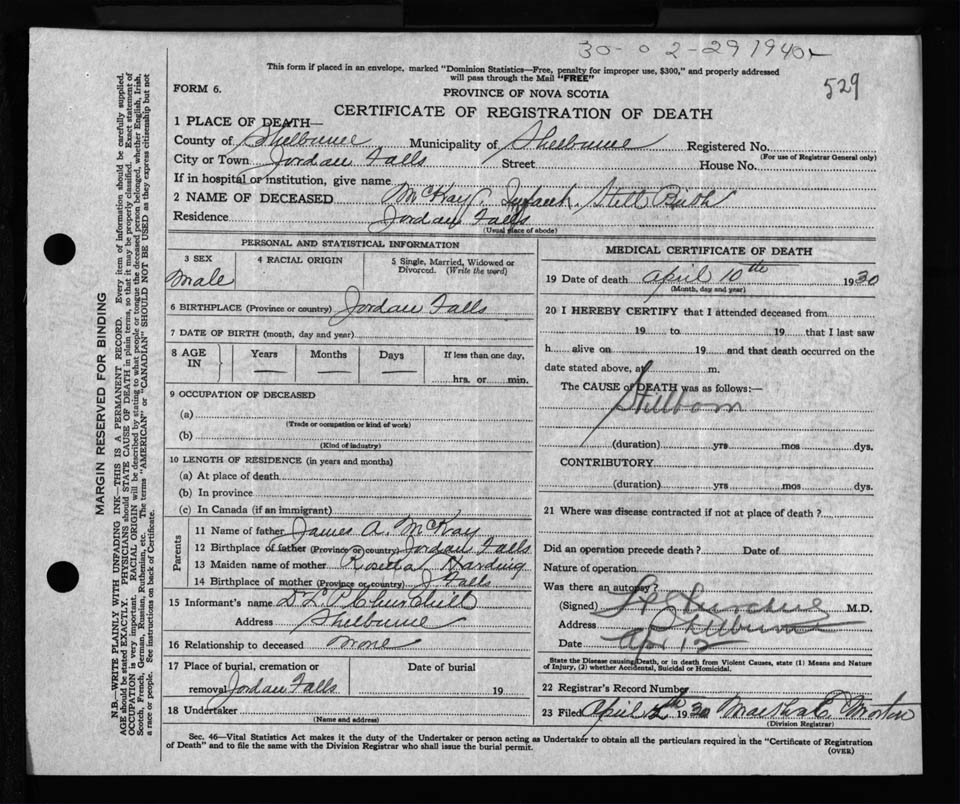 30-02-291940
This form if placed in an envelope, marked "Dominion Statistics—Free, penalty for improper use, $300," and properly addressed
will pass through the Mail "FREE"
529
FORM 6.
PROVINCE OF NOVA SCOTIA
CERTIFICATE OF REGISTRATION OF DEATH
1 PLACE OF DEATH—
County of Shelburne Municipality of Shelburne Registered No.
(For use of Registrar General only)
City or Town Jordan Falls Street House No.
If in hospital or institution, give name
2 NAME OF DECEASED McKay, Infant. Still Birth
Residence Jordan Falls
(Usual place of abode)
PERSONAL AND STATISTICAL INFORMATION
3 SEX 4 RACIAL ORIGIN 5 Single, Married, Widowed or
Divorced. (Write the word)
Male
6 BIRTHPLACE (Province or country) Jordan Falls
7 DATE OF BIRTH (month, day and year)
8 AGE IN Years Months Days If less than one day,
— — — hrs. or min.
9 OCCUPATION OF DECEASED
(a)
(Trade or occupation or kind of work)
(b)
(Kind of industry)
10 LENGTH OF RESIDENCE (in years and months)
(a) At place of death
(b) In province
(c) In Canada (if an immigrant)
Parents
11 Name of father James A. McKay
12 Birthplace of father (Province or country) Jordan Falls
13 Maiden name of mother Rosetta Harding
14 Birthplace of mother (Province or country) J Falls
15 Informant's name Dr L. P. Churchill
Address Shelburne
16 Relationship to deceased None
17 Place of burial, cremation or Date of burial
removal Jordan Falls 19
18 Undertaker
(Name and address)
MEDICAL CERTIFICATE OF DEATH
19 Date of death April 10th 1930
(Month, day and year)
20 I HEREBY CERTIFY that I attended deceased from
19 to 19 that I last saw
h alive on 19 and that death occurred on the
date stated above, at m.
The CAUSE of DEATH was as follows:—
Stillborn
(duration) yrs mos dys.
CONTRIBUTORY
(duration) yrs mos dys.
21 Where was disease contracted if not at place of death?
Did an operation precede death? Date of
Nature of operation
Was there an autopsy
(Signed) Churchill M.D.
Address Shelburne
Date Apr 12
State the Disease causing Death, or in death from Violent Causes, state (1) Means and Nature
of Injury, (2) whether Accidental, Suicidal or Homicidal.
22 Registrar's Record Number
23 Filed April 12th 1930 Morton
(Division Registrar)
Sec. 46—Vital Statistics Act makes it the duty of the Undertaker or person acting as Undertaker to obtain all the particulars required in the "Certificate of Registration
of Death" and to file the same with the Division Registrar who shall issue the burial permit.
(OVER)
MARGIN RESERVED FOR BINDING
N.B.—WRITE PLAINLY WITH UNFADING INK—THIS IS A PERMANENT RECORD. Every item of information should be carefully supplied.
AGE should be stated EXACTLY. PHYSICIANS should STATE CAUSE OF DEATH in plain terms, so that it may be properly classified. Exact statement of
OCCUPATION is very important. RACIAL ORIGIN will be described by stating to what people or tongue the deceased person belonged, whether English, Irish,
Scotch, French, German, Russian, Ruthenian, etc. The terms "AMERICAN" or "CANADIAN" SHOULD NOT BE USED as they express citizenship but not
a race or people. See instructions on back of Certificate.